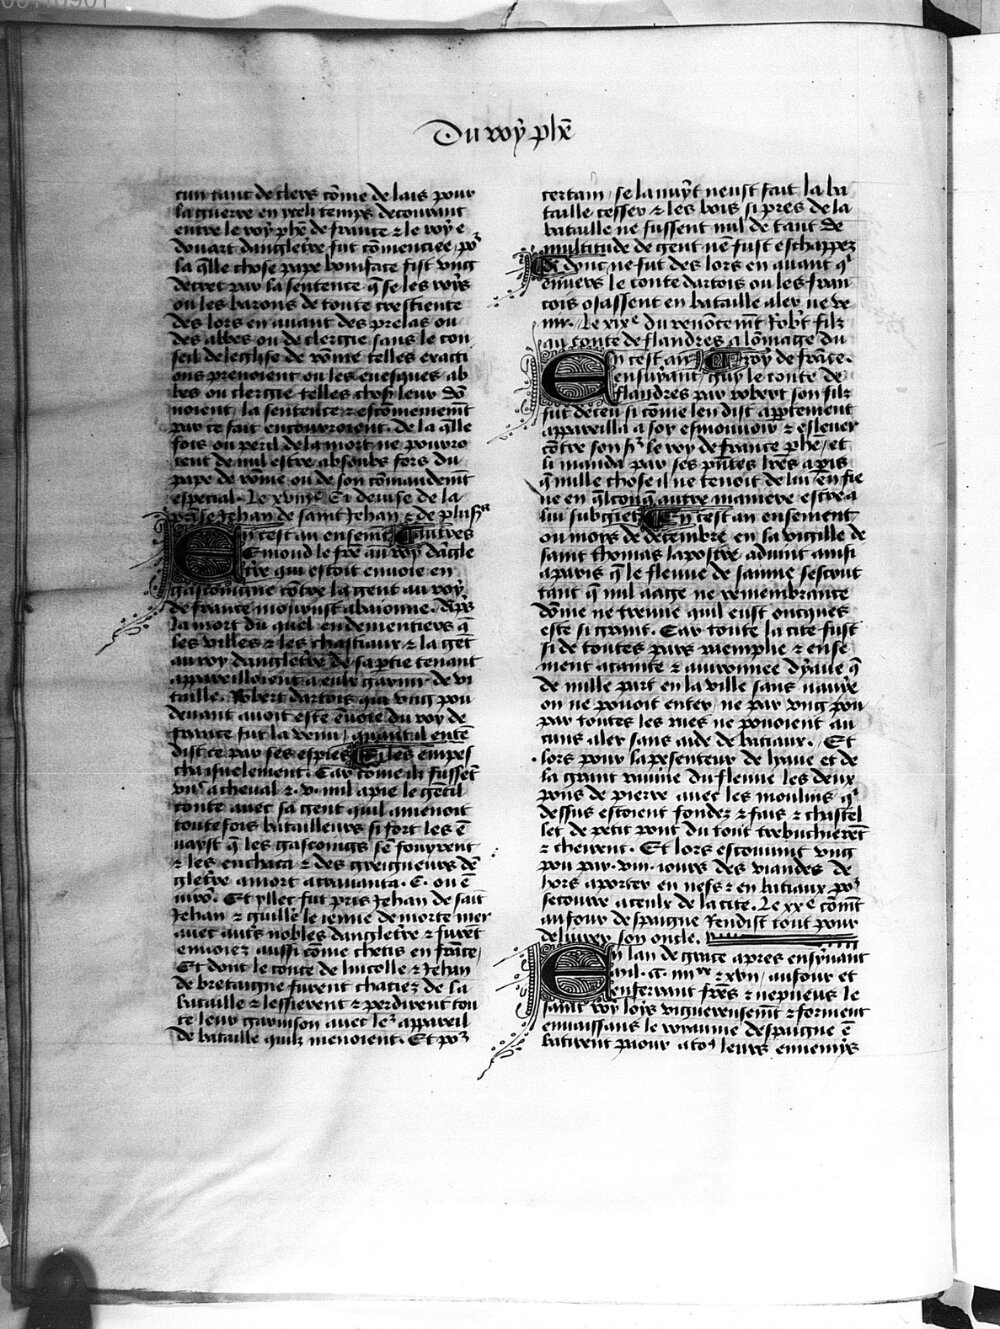 Du roy phē
cun tant de clers cōme de lais pour
la guerre en yceli temps decourant
entre le roy phē de france & le roy e
douart dangletre fut cōmenciee po2
la q̄lle chose pape boniface fist vng
decret par sa sentence q̄ se les roys
ou les barons de toute crestiente
des lors en auant des prelas ou
des abbes ou de clergie sans le con
seil de leglise de rōme telles exacti
ons prenoient ou les euesques ab
bes ou clergie telles chos leur dō
noient / la sentence descōmeniemt
par ce fait encourroient. de la q̄lle
fois ou peril de la mort ne pourro
ient de nul estre absoubs fors du
pape de rōme ou de son cōmandemt
especial. Le xviije. Ci deuise de la
prise Jehan de saint Jehan & de plusrs
En cest an ensemt autres
Emond le frē au roy dāgle
tre qui estoit enuoie en
gascoingne cōtre la gent au roy
de france mourust abaionne. Aps
la mort du quel endementiers q̄
les villes & les chastiaux & la gēt
au roy dangletre de sa ptie tenant
appareilloient a eulx garnir de vi
taille. Robert dartois qui vng pou
deuant auoit este ēuoie du roy de
france sur la venu / quant il entē
dist ce par ses espies les empes
cha isnelement. Car cōme ilz fussēt
viic a cheual & v. mil a pie le gētil
conte auec sa gent quil amenoit
toutefois batailleurs si fort les ē
uayst q̄ les gascoings se fouyrent
& les enchaca & des greigneurs dē
gletre a mort acrauanta. C. ou ē
uirō. Et yllec fut pris Jehan de sait
Jehan & guille le ienne de morte mer
auec auts nobles dangletre & furēt
enuoiez aussi cōme chetis en frāce /
Et dont le conte de lincolle & Jehan
de bretaigne furent chaciez de la
bataille & lessierent & perdirent tou
te leur garnison auec les appareil
de bataille quilz menoient. Et po2
certain / se la nuyt neust fait la ba
taille cesser & les bois si pres de la
bataille ne fussent nul de tant de
multitude de gent nē fust eschappez
donc ne fut des lors en auant q̄
enuers le conte dartois ou les fran
cois osassent en bataille aler ne ve
nir. Le xixe du renōcemt Robt filz
au conte de flandres a lomage du
En cest an roy de frāce.
ensuyuant / guy le conte de
flandres par robert son filz
fut deceu si cōme len dist appertement
appareilla a soy esmouuoir & esleuer
cōtre son sr le roy de france phē / et
li manda par ses p̄ntes lrēs a pis
q̄ nulle chose il ne tenoit de lui en fie
ne en q̄lconq̄ autre maniere estre a
lui subgiet En cest an ensement
ou moys de decembre en la vigille de
saint thomas lapostre aduint ainsi
a paris q̄ le fleuue de sainne sescrut
tant q̄ nul aage ne remembrance
dōme ne treuue quil eust oncques
este si grant. Car toute la cite fust
si de toutes pars raemplie & ense
ment atainte & auironnee dyaue q̄
de nulle part en la ville sans nauire
on ne pouoit entrer ne par vng pou
par toutes les rues ne pouoient au
cuns aler sans aide de batiaux. Et
lors pour la pesenteur de lyaue et de
la grant rauine du fleuue les deux
pons de pierre auec les moulins q̄
dessus estoient fondez & fais & chastel
let de petit pont du tout trebucherēt
& cheurent. Et lors escouuint vng
pou par. viii. iours des viandes de
hors aporter en nefs & en batiaux po2
secourre a ceulx de la cite. Le xxe cōmt
aufour despaigne rendist tout pour
deliurer son oncle.
En lan de grace apres ensyuant
mil. cc. iiijxx & xvii / aufour et
enferrant frēs & nepueus le
saint roy loys viguereusemt & forment
enuaissans le royaume despaigne ē
batirent paour a to9 leurs ennemys